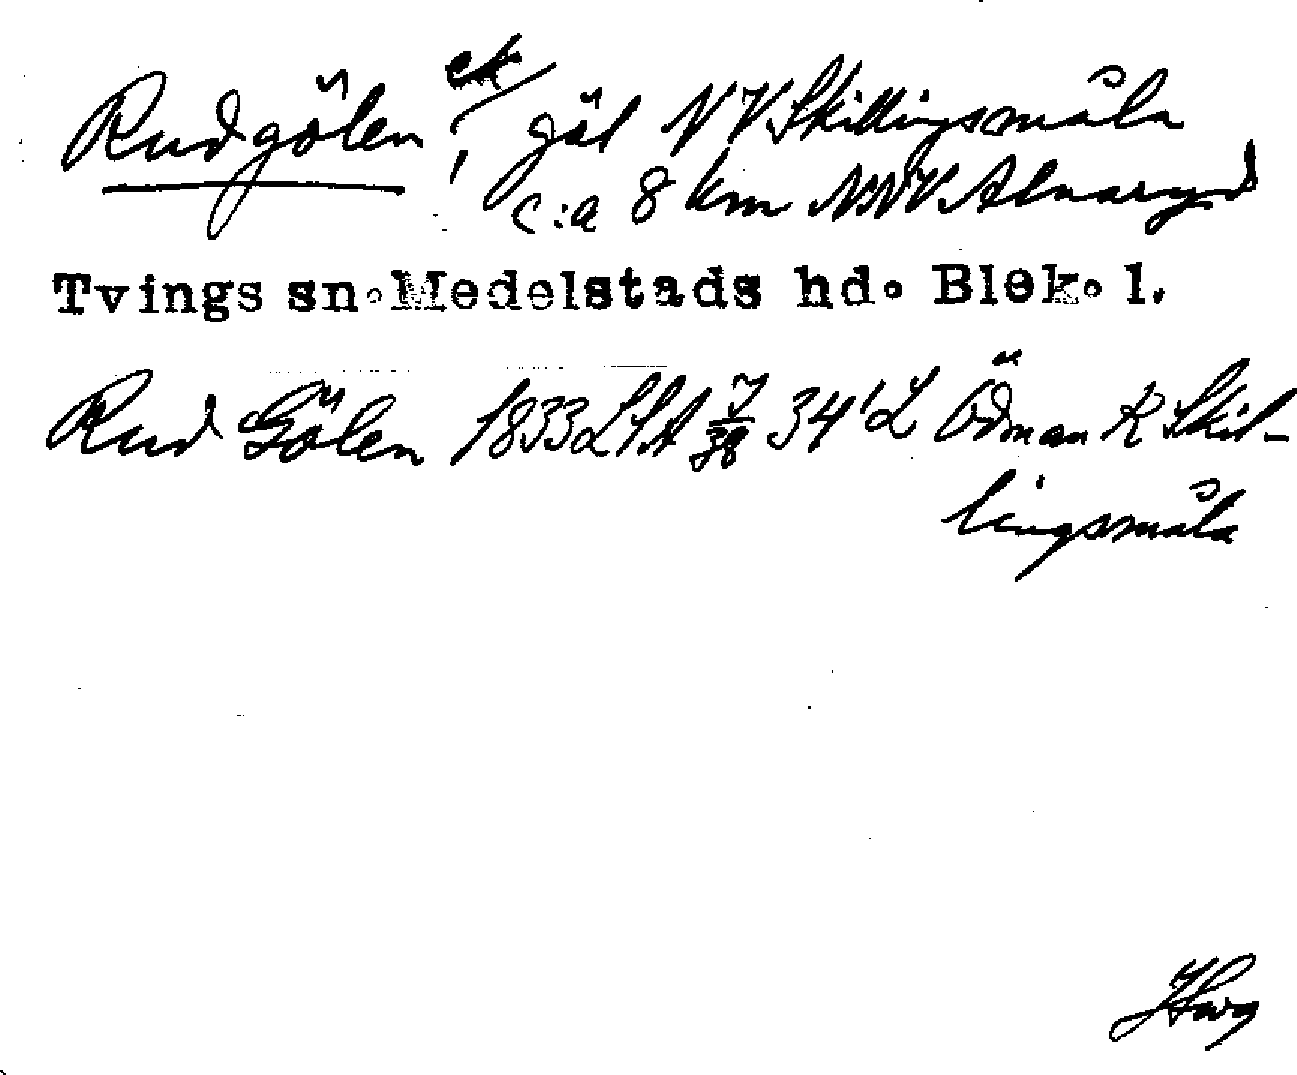 Rudgölen ek ! göl NV Skillingsmåla
c:a 8 km NNV Alnaryd
Tvings sn. Medelstads hd. Blek. l.
Rud Gölen 1833 LSA 34 Ödman K Skil-
lingsmåla